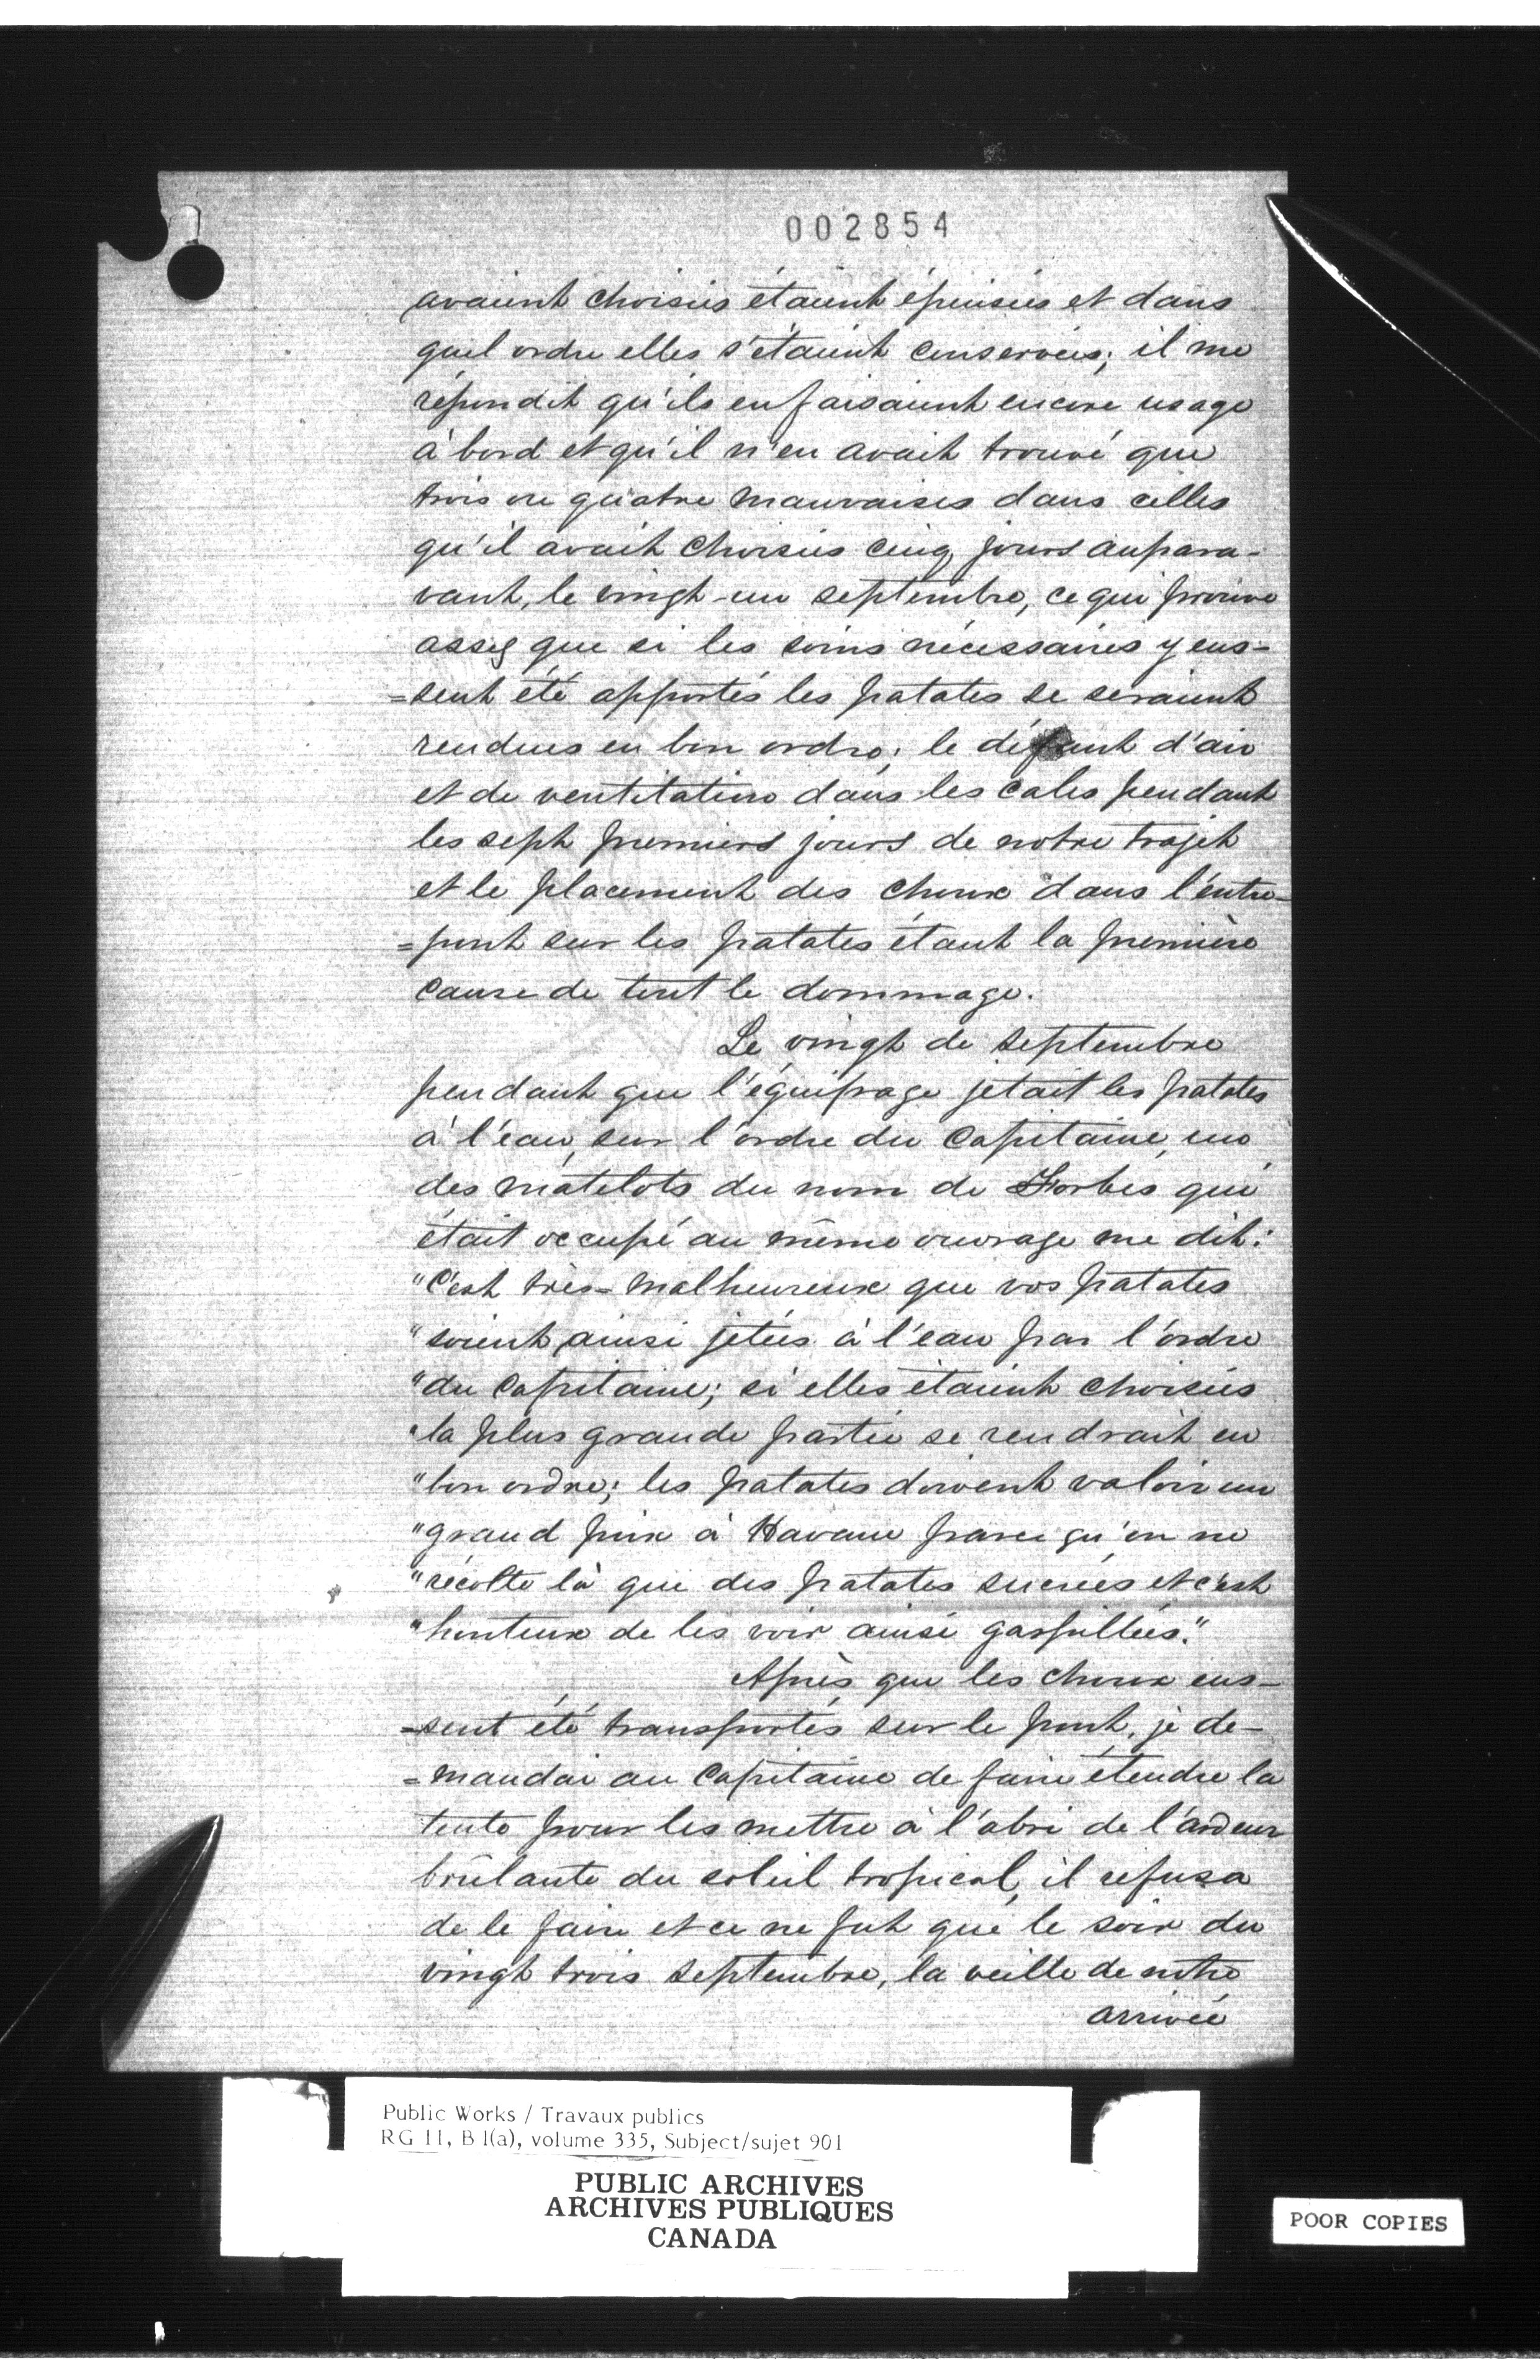 002854
avaient choisies étaient épuisées et dans
quel ordre elles s'étaient conservées; il me
répondit qu'ils en faisaient encore usage
à bord et qu'il n'en avait trouvé que
trois ou quatre mauvaises dans celles
qu'il avait choisies cinq jours aupara-
vant, le vingt-un septembre, ce qui prouve
assez que si les soins nécessaires y eus-
=sent été apportés les patates se seraient
rendues en bon ordre; le défaut d'air
et de ventilation dans les cales pendant
les sept premiers jours de notre trajet
et le placement des choux dans l'entre-
=pont sur les patates étant la première
cause de tout le dommage.
Le vingt de septembre
pendant que l'équipage jetait les patates
à l'eau, sur l'ordre du Capitaine, un
des matelots du nom de Forbes qui
était occupé au même ouvrage me dit:
"C'est très-malheureux que vos patates
"soient ainsi jetées à l'eau par l'ordre
"du Capitaine; si elles étaient choisies
"la plus grande partie se rendrait en
"bon ordre; les patates doivent valoir un
"grand prix à Havane parce qu'on ne
"récolte là que des patates sucrées et c'est
"honteux de les voir ainsi gaspillées."
Après que les choux eus-
=sent été transportés sur le pont, je de-
=mandai au Capitaine de faire étendre la
tente pour les mettre à l'abri de l'ardeur
brûlante du soleil tropical, il refusa
de le faire et ce ne fut que le soir du
vingt trois septembre, la veille de notre
arrivée
Public Works / Travaux publics
RG 11, B 1(a), volume 335, Subject/sujet 901
PUBLIC ARCHIVES
ARCHIVES PUBLIQUES
CANADA
POOR COPIES